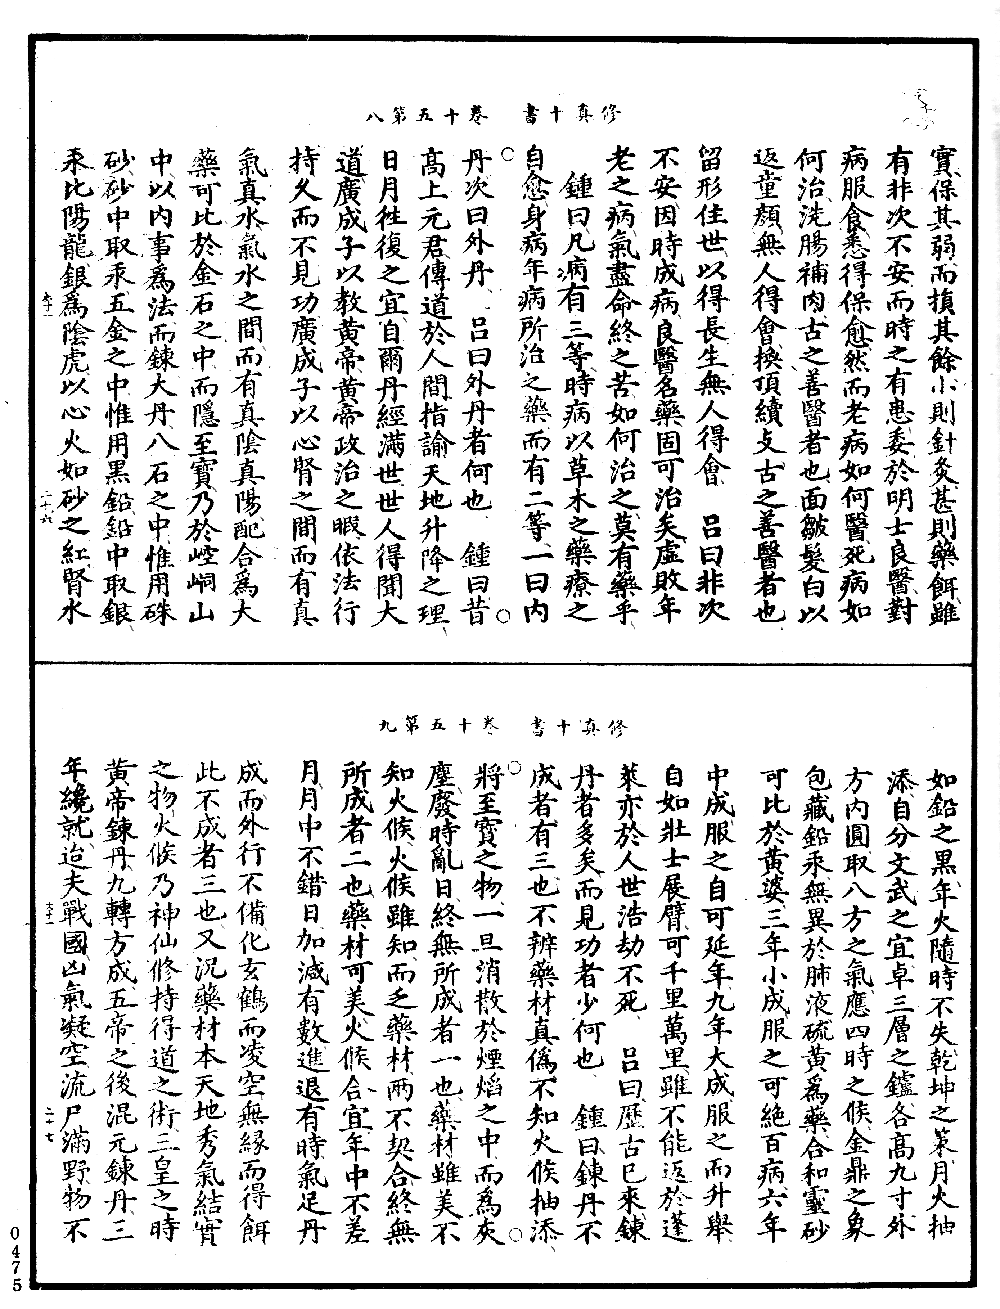 修真十書　卷十五第八
實保其弱而損其餘小則針灸甚則藥餌雖
有非次不安而時之有患委於明士良醫對
病服食悉得保愈然而老病如何醫死病如
何治洗腸補肉古之善醫者也面皺髮白以
返童顏無人得會換頂續支古之善醫者也
留形住世以得長生無人得會　吕曰非次
不安因時成病良醫名藥固可治矣虛敗年
老之病氣盡命終之苦如何治之莫有藥乎
鍾曰凡病有三等時病以草木之藥療之
自愈身病年病所治之藥而有二等一曰内
丹次曰外丹　吕曰外丹者何也　鍾曰昔
髙上元君傳道於人間指諭天地升降之理
日月徃復之宜自爾丹經滿世世人得聞大
道廣成子以教黄帝黄帝政治之暇依法行
持久而不見功廣成子以心腎之間而有真
氣真水氣水之間而有真陰真陽配合爲大
藥可比於金石之中而隱至寶乃於崆峒山
中以内事爲法而鍊大丹八石之中惟用硃
砂砂中取汞五金之中惟用黑鉛鉛中取銀
汞比陽龍銀爲陰虎以心火如砂之紅腎水
二十六
修真十書　卷十五第九
如鉛之黒年火隨時不失乾坤之策月火抽
添自分文武之宜卓三層之鑪各髙九寸外
方内圓取八方之氣應四時之候金鼎之象
包藏鉛汞無異於肺液硫黄爲藥合和靈砂
可比於黄婆三年小成服之可絶百病六年
中成服之自可延年九年大成服之而升舉
自如壯士展臂可千里萬里雖不能返於蓬
萊亦於人世浩劫不死　吕曰歷古已來鍊
丹者多矣而見功者少何也　鍾曰鍊丹不
成者有三也不辨藥材真僞不知火候抽添
將至寶之物一旦消散於煙焰之中而爲灰
塵廢時亂日終無所成者一也藥材雖美不
知火候火候雖知而乏藥材兩不契合終無
所成者二也藥材可美火候合宜年中不差
月月中不錯日加減有數進退有時氣足丹
成而外行不備化玄鶴而凌空無縁而得餌
此不成者三也又況藥材本天地秀氣結實
之物火候乃神仙修持得道之術三皇之時
黄帝鍊丹九轉方成五帝之後混元鍊丹三
年纔就迨夫戰國凶氣凝空流尸滿野物不
二十七
0475